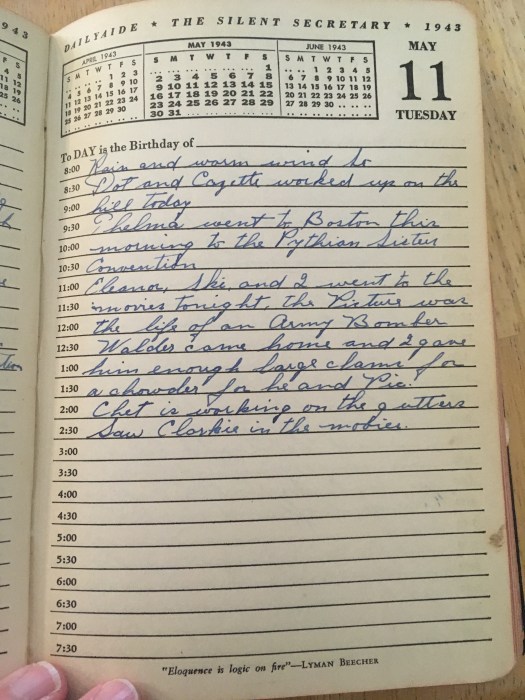 1943
DAILYAIDE ★ THE SILENT SECRETARY ★ 1943
APRIL 1943
S M T W T F S
1 2 3
4 5 6 7 8 9 10
11 12 13 14 15 16 17
18 19 20 21 22 23 24
25 26 27 28 29 30
MAY 1943
S M T W T F S
1
2 3 4 5 6 7 8
9 10 11 12 13 14 15
16 17 18 19 20 21 22
23 24 25 26 27 28 29
30 31
JUNE 1943
S M T W T F S
1 2 3 4 5
6 7 8 9 10 11 12
13 14 15 16 17 18 19
20 21 22 23 24 25 26
27 28 29 30
MAY
11
TUESDAY
To DAY is the Birthday of
8:00 Rain and warm wind
8:30 Dot and Cazette worked up on the
9:00 hill today
9:30 Thelma went to Boston this
10:00 morning to the Pythian Sister
10:30 Convention
11:00 Eleanor, Ski, and I went to the
11:30 movies tonight, the Picture was
12:00 the life of an Army Bomber
12:30 Walder came home and I gave
1:00 him enough large clams for
1:30 a chowder for he and Pic.
2:00 Chet is working on the gutters
2:30 Saw Clarkie in the movies.
3:00
3:30
4:00
4:30
5:00
5:30
6:00
6:30
7:00
7:30
"Eloquence is logic on fire"—LYMAN BEECHER